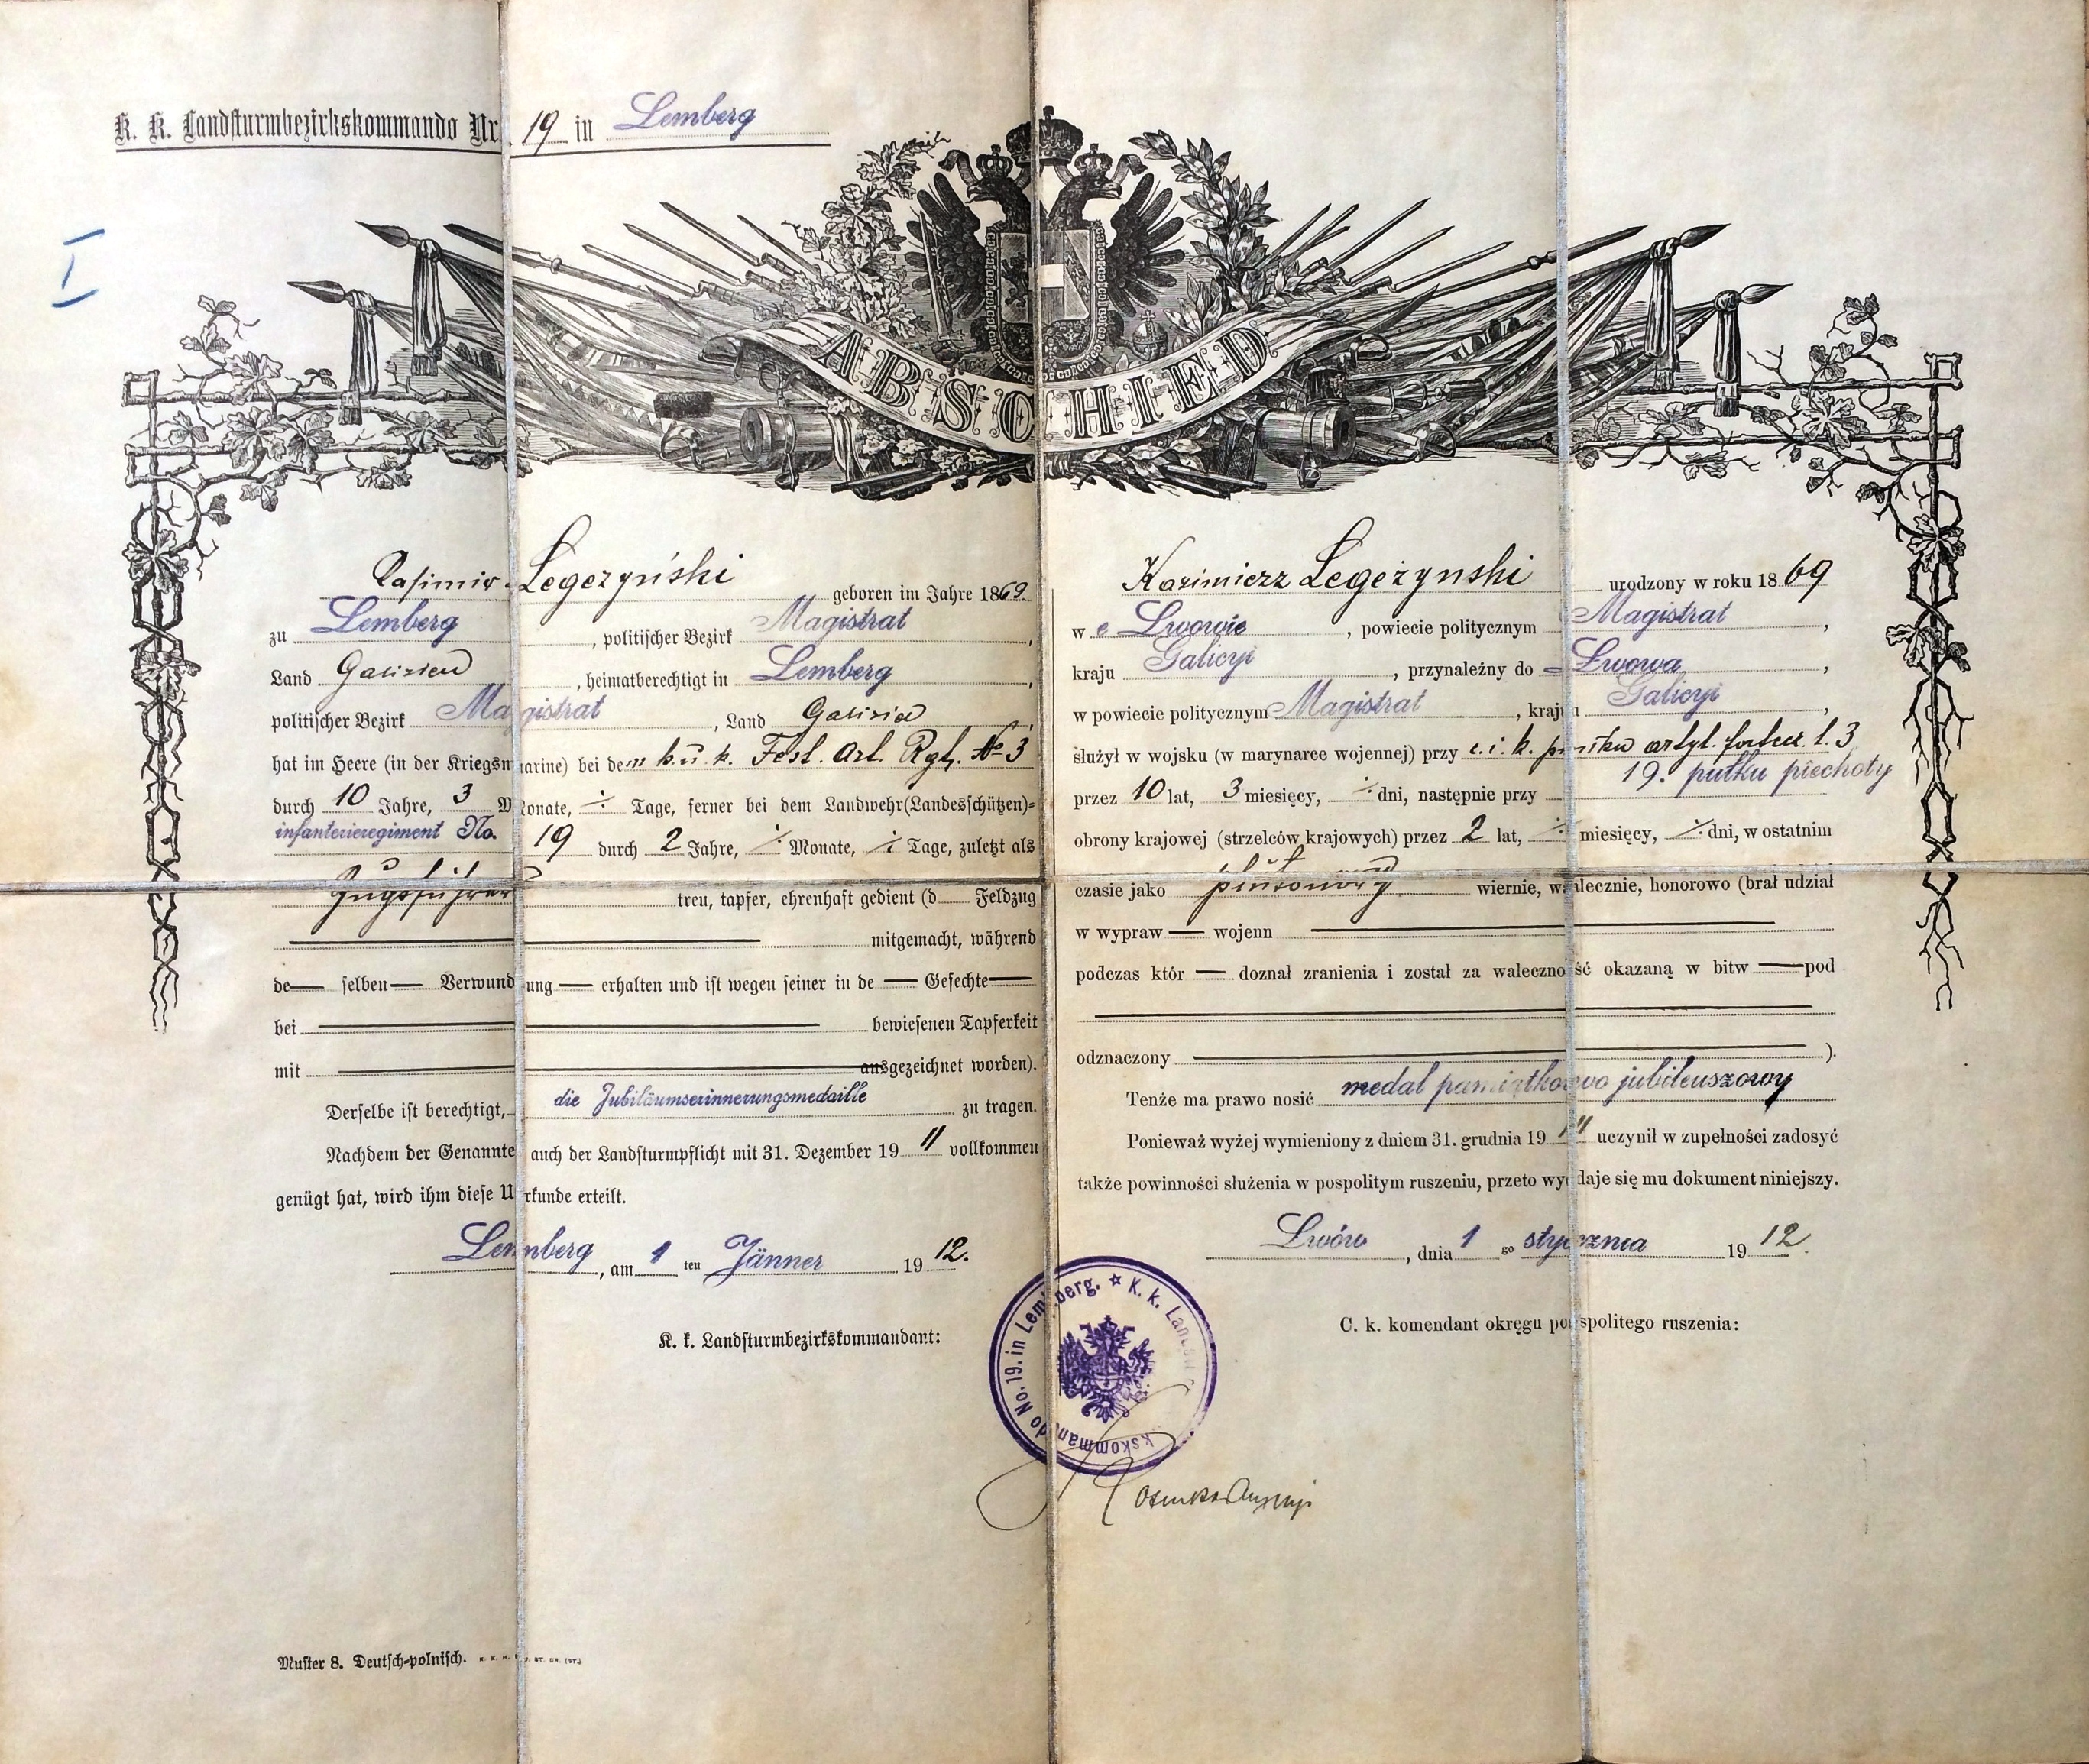 K. K. Landsturmbezirkskommando Nr. 19 in Lemberg
I
ABSCHIED
Kasimir Legeżyński geboren im Jahre 1869
zu Lemberg, politischer Bezirk Magistrat,
Land Galizien, heimatberechtigt in Lemberg,
politischer Bezirk Magistrat, Land Galizien,
hat im Heere (in der Kriegsmarine) bei dem k. u. k. Fest. Art. Rgt. No 3
durch 10 Jahre, 3 Monate, ·/· Tage, ferner bei dem Landwehr(Landesschützen)-
infanterieregiment No. 19 durch 2 Jahre, ·/· Monate, ·/· Tage, zuletzt als
Zugsführer treu, tapfer, ehrenhaft gedient (d— Feldzug
— mitgemacht, während
de— selben— Verwundung— erhalten und ist wegen seiner in de— Gefechte—
bei — bewiesenen Tapferkeit
mit — ausgezeichnet worden).
Derselbe ist berechtigt, die Jubiläumserinnerungsmedaille zu tragen.
Nachdem der Genannte auch der Landsturmpflicht mit 31. Dezember 1911 vollkommen
genügt hat, wird ihm diese Urkunde erteilt.
Lemberg, am 1 ten Jänner 1912.
K. k. Landsturmbezirkskommandant:
Kazimierz Legeżynski urodzony w roku 1869
w e Lwowie, powiecie politycznym Magistrat,
kraju Galicyi, przynależny do Lwowa,
w powiecie politycznym Magistrat, kraju Galicyi,
służył w wojsku (w marynarce wojennej) przy c. i. k. pułku artyl. fortec. l. 3
przez 10 lat, 3 miesięcy, ·/· dni, następnie przy 19. pułku piechoty
obrony krajowej (strzelców krajowych) przez 2 lat, ·/· miesięcy, ·/· dni, w ostatnim
czasie jako plutonowy wiernie, walecznie, honorowo (brał udział
w wypraw— wojenn —
podczas któr— doznał zranienia i został za waleczność okazaną w bitw—pod
—
odznaczony — ).
Tenże ma prawo nosić medal pamiątkowo jubileuszowy
Ponieważ wyżej wymieniony z dniem 31. grudnia 1911 uczynił w zupełności zadosyć
także powinności służenia w pospolitym ruszeniu, przeto wydaje się mu dokument niniejszy.
Lwów, dnia 1 go stycznia 1912.
C. k. komendant okręgu pospolitego ruszenia:
K. k. Landst kskommando No. 19. in Lemberg. ☆
Muster 8. Deutsch-polnisch.